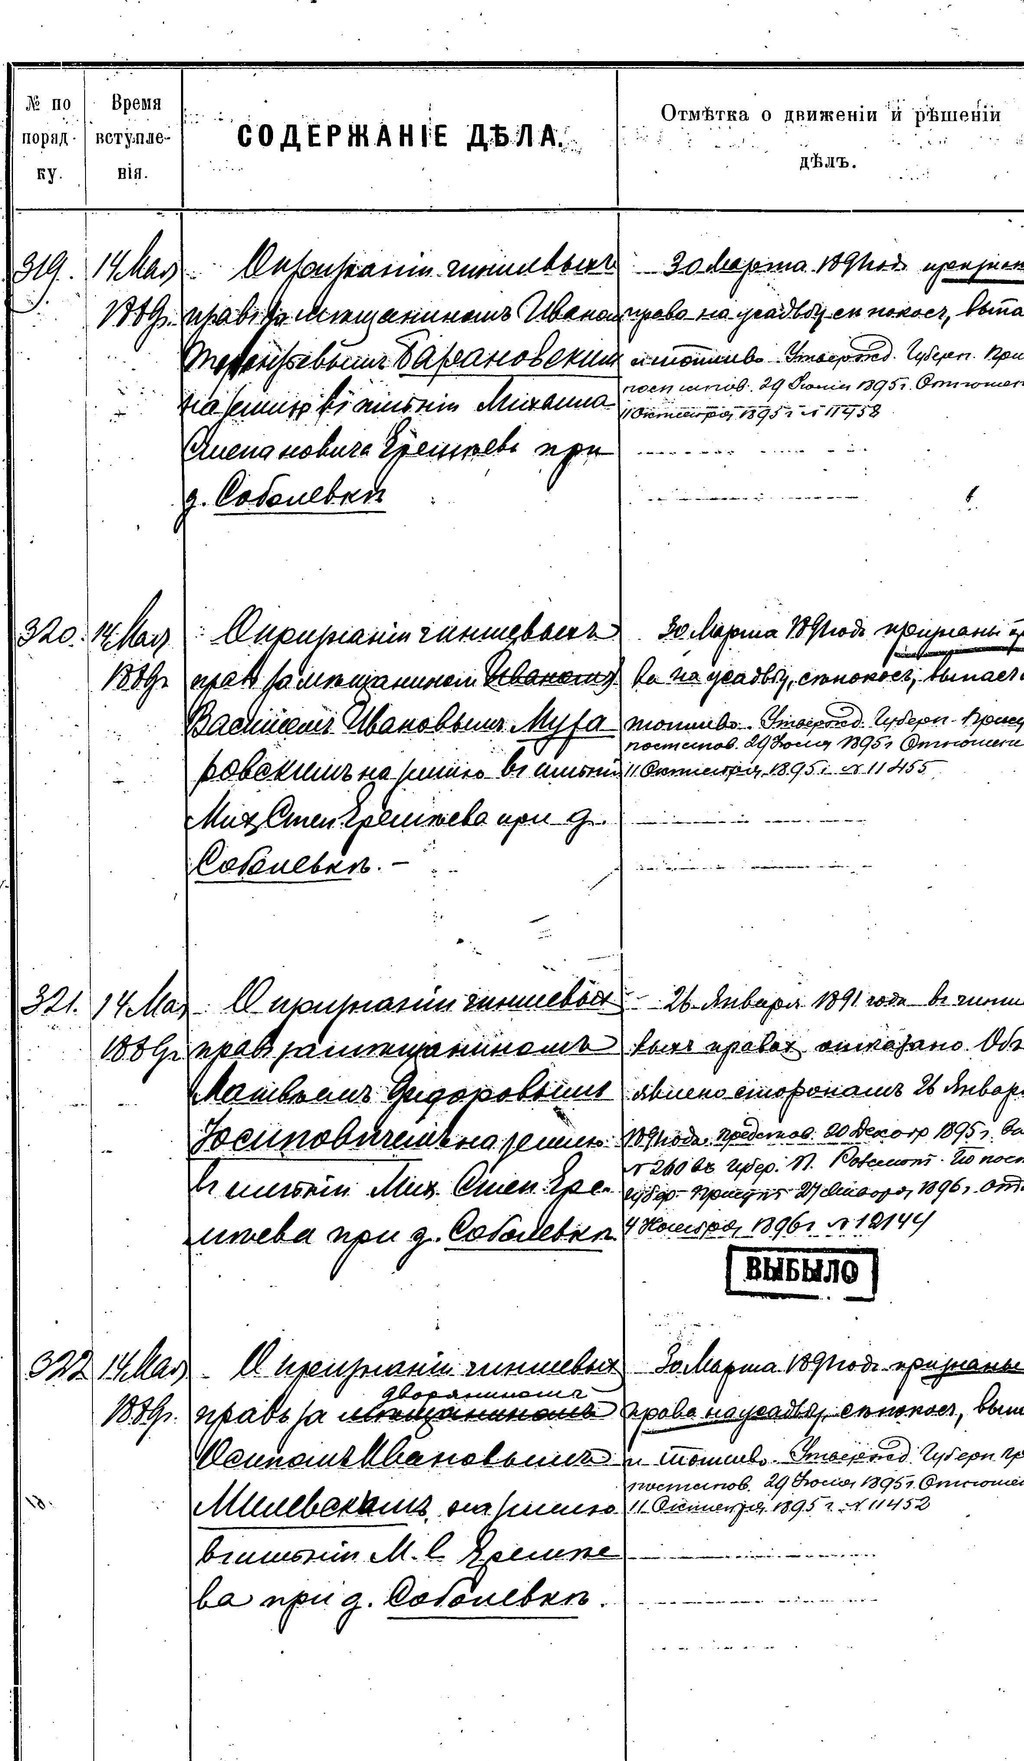 № по поряд-ку.
Время вступле-нія.
СОДЕРЖАНІЕ ДѢЛА.
Отмѣтка о движеніи и рѣшеніи
дѣлъ.
319.
14 Мая
1889г.
О признаніи чиншевыхъ
правъ за мѣщаниномъ Иваномъ
Барановскимъ
на землю въ имѣніи Михаила
Степановича Еремѣева при
д. Соболевкѣ
30 Марта 1891 года признаны
права на усадьбу, сѣнокосъ, выпа
и топливо Утвержд. Губерн. При
постанов. 29 Іюня 1895г. Отношен
11 Октября 1895 г. № 11458
320.
14 Мая
1889г.
О признаніи чиншевыхъ
правъ за мѣщаниномъ Иваномъ
Василіемъ Ивановымъ Муза
ровскимъ на землю въ имѣніи
Мих. Степ. Еремѣева при д.
Соболевкѣ. –
30 Марта 1891 года признаны пра
ва на усадьбу, сѣнокосъ, выпасъ
топливо Утвержд. Губерн. Прису
постанов. 29 Іюня 1895г. Отношен
11 Октября 1895 г. № 11455
321.
14 Мая
1889г.
О признаніи чиншевыхъ
правъ за мѣщаниномъ
Матвѣемъ Сидоровымъ
Юсиповичемъ на землю
въ имѣніи Мих. Степ. Ере-
мѣева при д. Соболевкѣ
26 Января 1891 года въ чинше
выхъ правахъ отказано. Объ
явлено сторонамъ 26 Января
1891 года. Представ. 20 Декабр 1895г. за
№ 260 въ Губер. П. По пост
Губер. Присут 27 Января 1896г. От
4 Ноября 1896г. № 12144
ВЫБЫЛО
322
14 Мая
1889г.
О признаніи чиншевыхъ
дворяниномъ
правъ за мѣщаниномъ
Осипомъ Ивановымъ
Милевскимъ на землю
въ имѣніи М. С. Еремѣе
ва при д. Соболевкѣ.
30 Марта 1891 года признаны
права на усадьбу, сѣнокосъ, вып
и топливо Утвержд. Губерн. Пр
постанов. 29 Іюня 1895г. Отношен
11 Октября 1895 г. № 11452